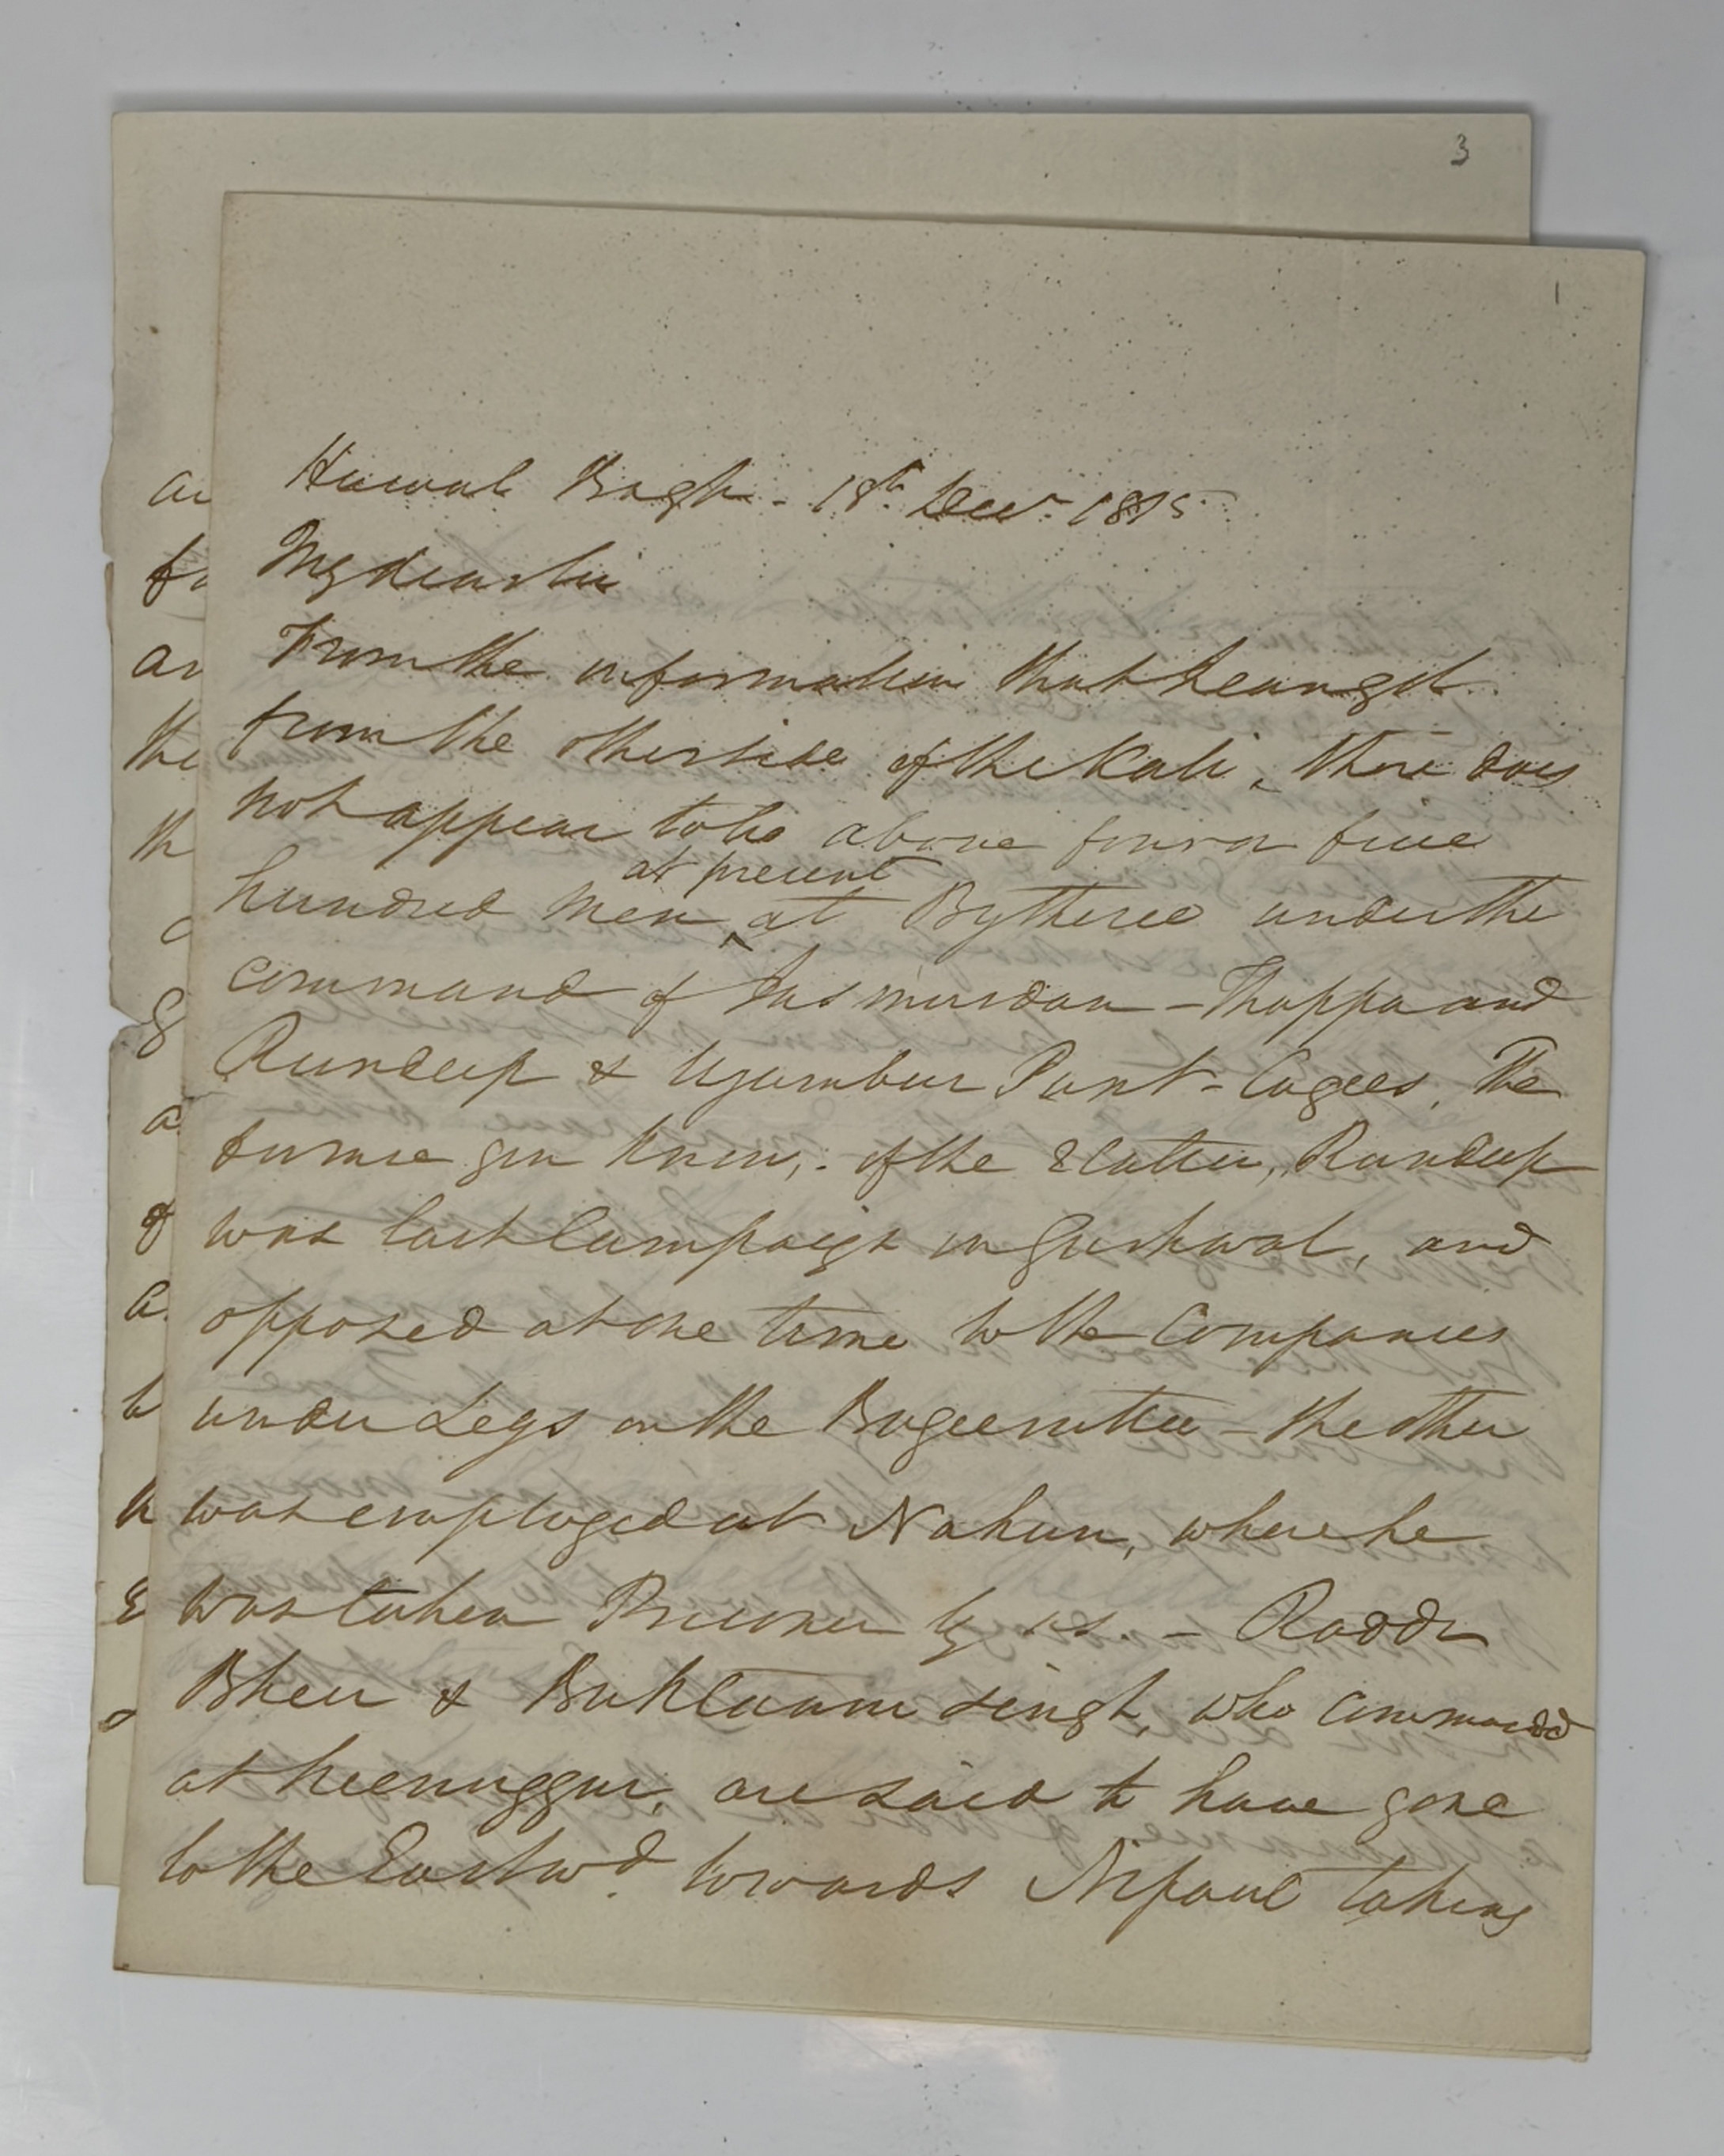 3
1
Hawul Bagh - 18th Decr. 1815
My dear Sir
From the information that I can get
from the other side of the Kali, there does
not appear to be above four or five
at present
hundred men at Bythree under the
command of Thappa and
Rundeep & Pant - Cagees. The
former you know, of the 2 latter, Rundeep
was last Campaign in Gurhwal, and
opposed at one time to the Companies
under Legs on the Bageeruttee - the other
was employed at Nahun, where he
was taken Prisoner by us. -
Bheer & Singh, who command
at are said to have gone
to the Eastwd. towards Nipaul taking